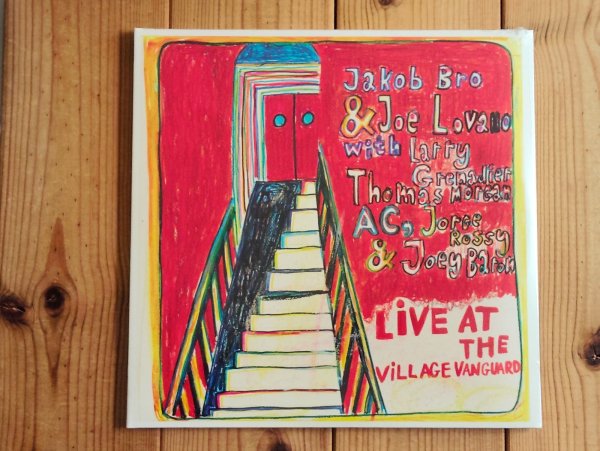 Jakob Bro
& Joe Lovano
with Larry
Grenadier
Thomas Morgan
AC, Jorge
Rossy
& Joey Baron
LiVE AT
THE
ViLLAGE VANGUARD